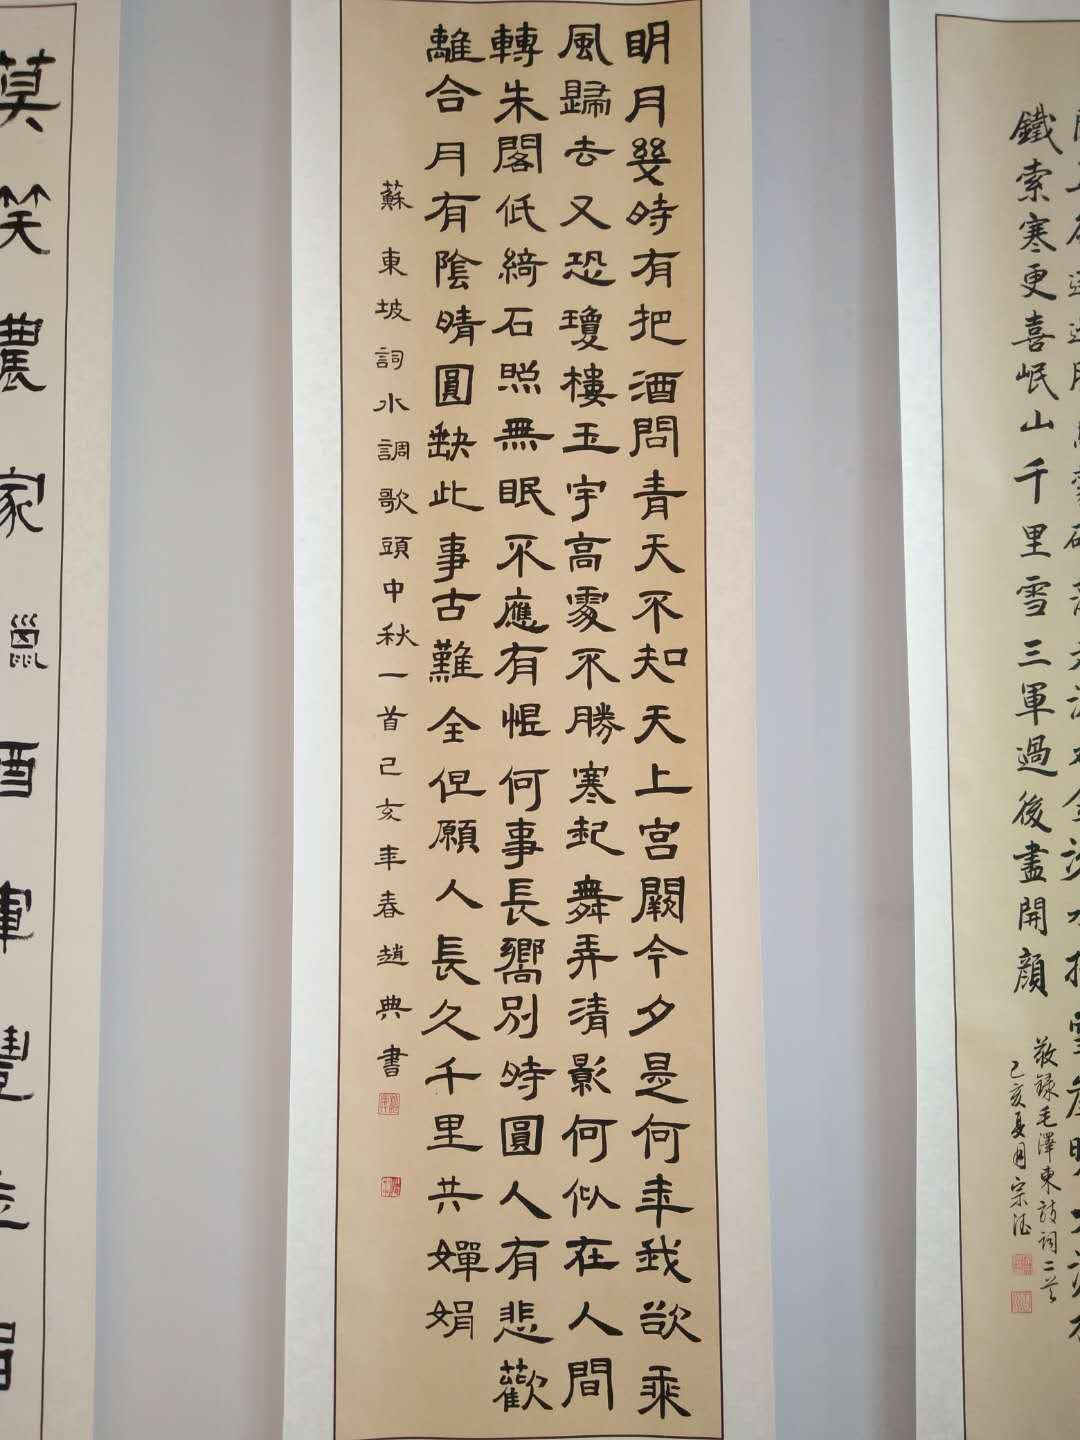 鐵索寒更喜岷山千里雪三軍過後盡開顏
敬録毛澤東詩詞二首
己亥夏月宗
明月幾時有把酒問青天不知天上宮闕今夕是何年我欲乘
風歸去又恐瓊樓玉宇高處不勝寒起舞弄清影何似在人間
轉朱閣低綺石照無眠不應有恨何事長嚮別時圓人有悲歡
離合月有陰晴圓缺此事古難全但願人長久千里共嬋娟
蘇東坡詞水調歌頭中秋一首己亥年春趙典書
莫笑農家臘酒渾豐年留